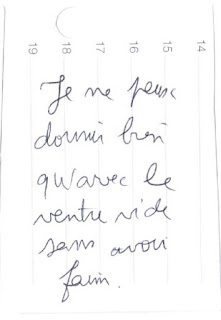 19 18 17 16 15 14
Je ne peux
dormir bien
qu'avec le
ventre vide
sans avoir
faim.